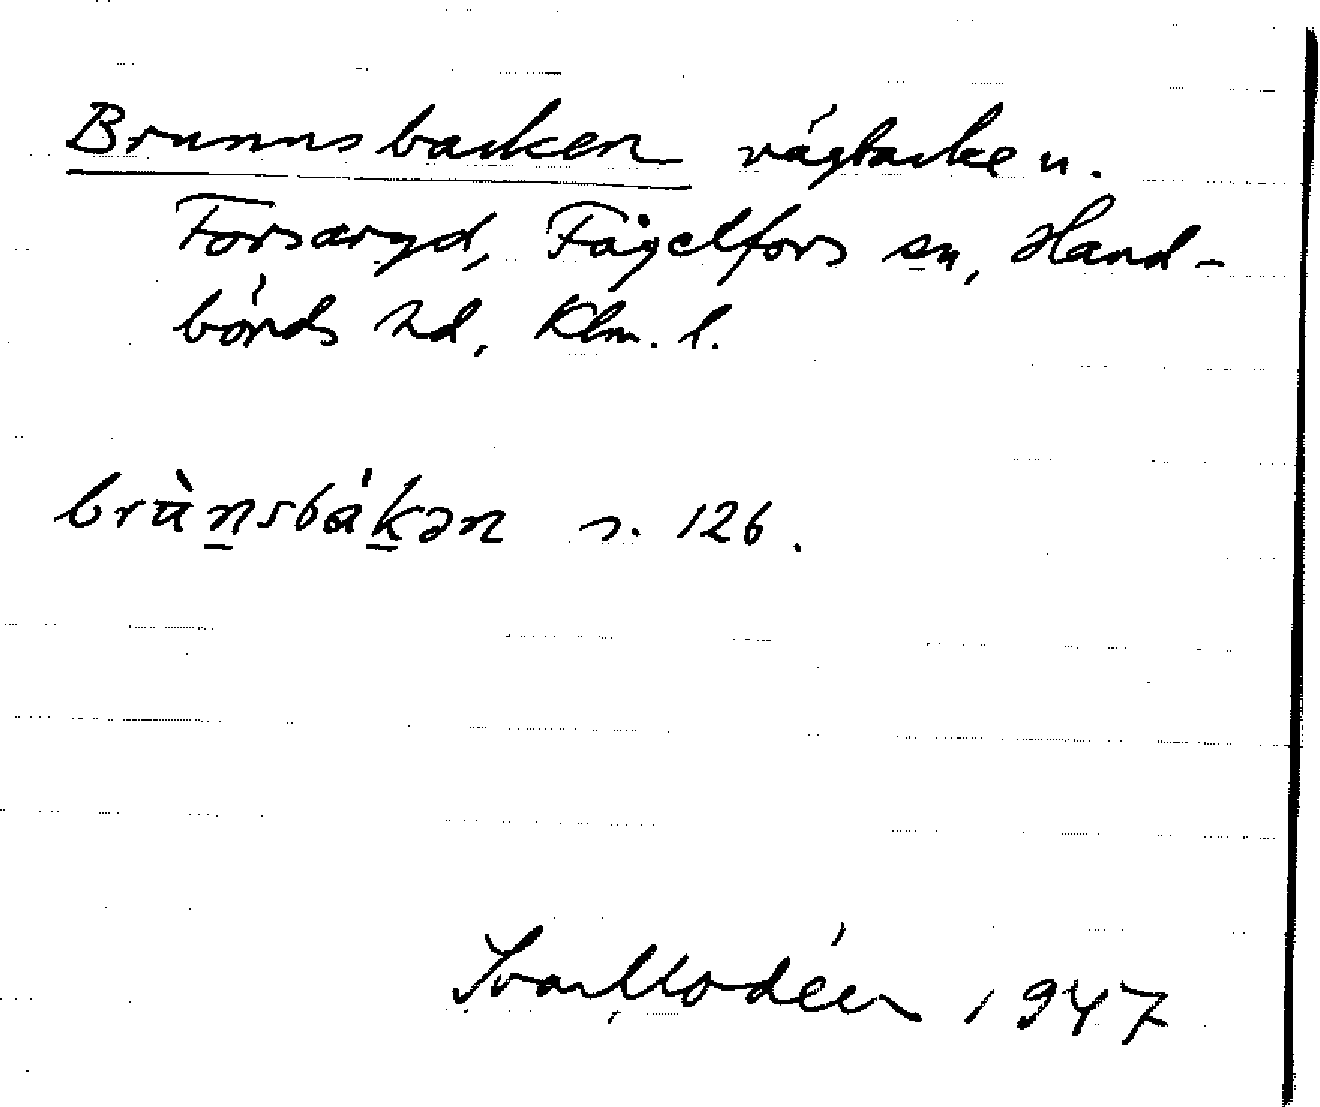 Brunnsbacken vägbacke u.
Forsaryd, Fågelfors sn, Hand-
börds hd, Klm. l.
brùn̲sbák̲ən s. 126.
Ivar Modéer 1947